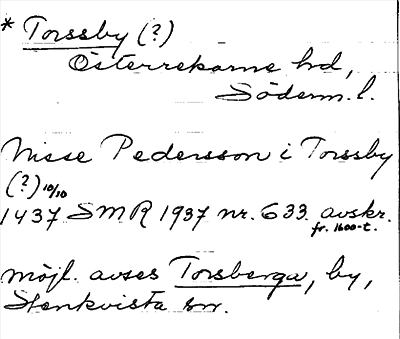 * Torssby (?)
Österrekarne hd,
Söderm. l.
Nisse Pedersson i Torssby
(?) 10/10
1437 SMR 1937 nr. 633 avskr.
fr. 1600-t.
möjl. avses Torsberga, by,
Stenkvista sn.